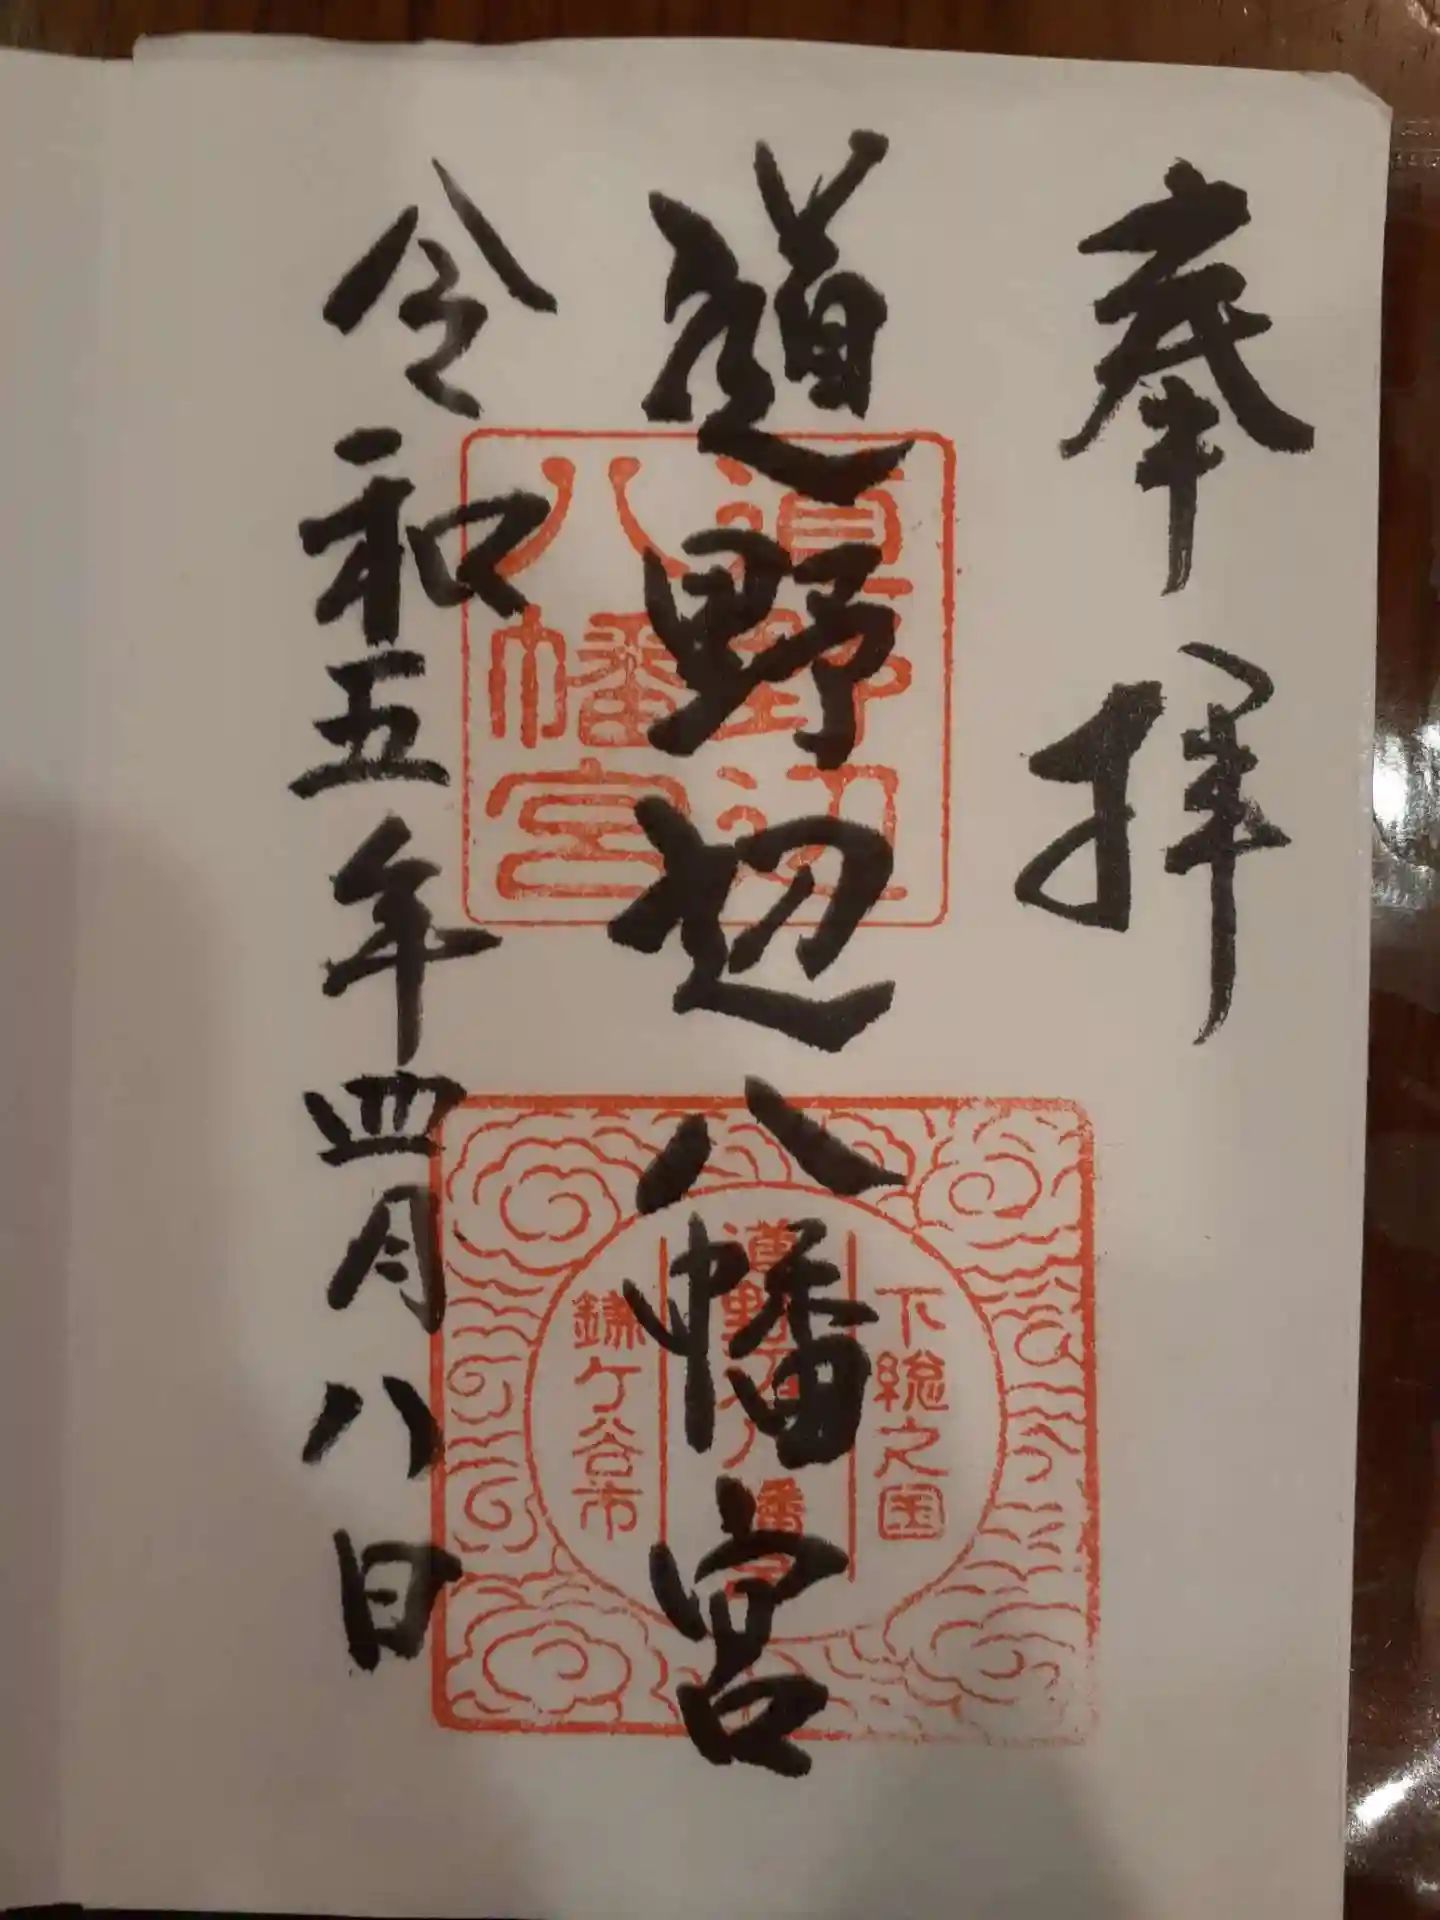 奉拝
道野辺八幡宮
令和五年四月八日
道野辺
八幡宮
下総之国
道野辺八幡宮
鎌ケ谷市